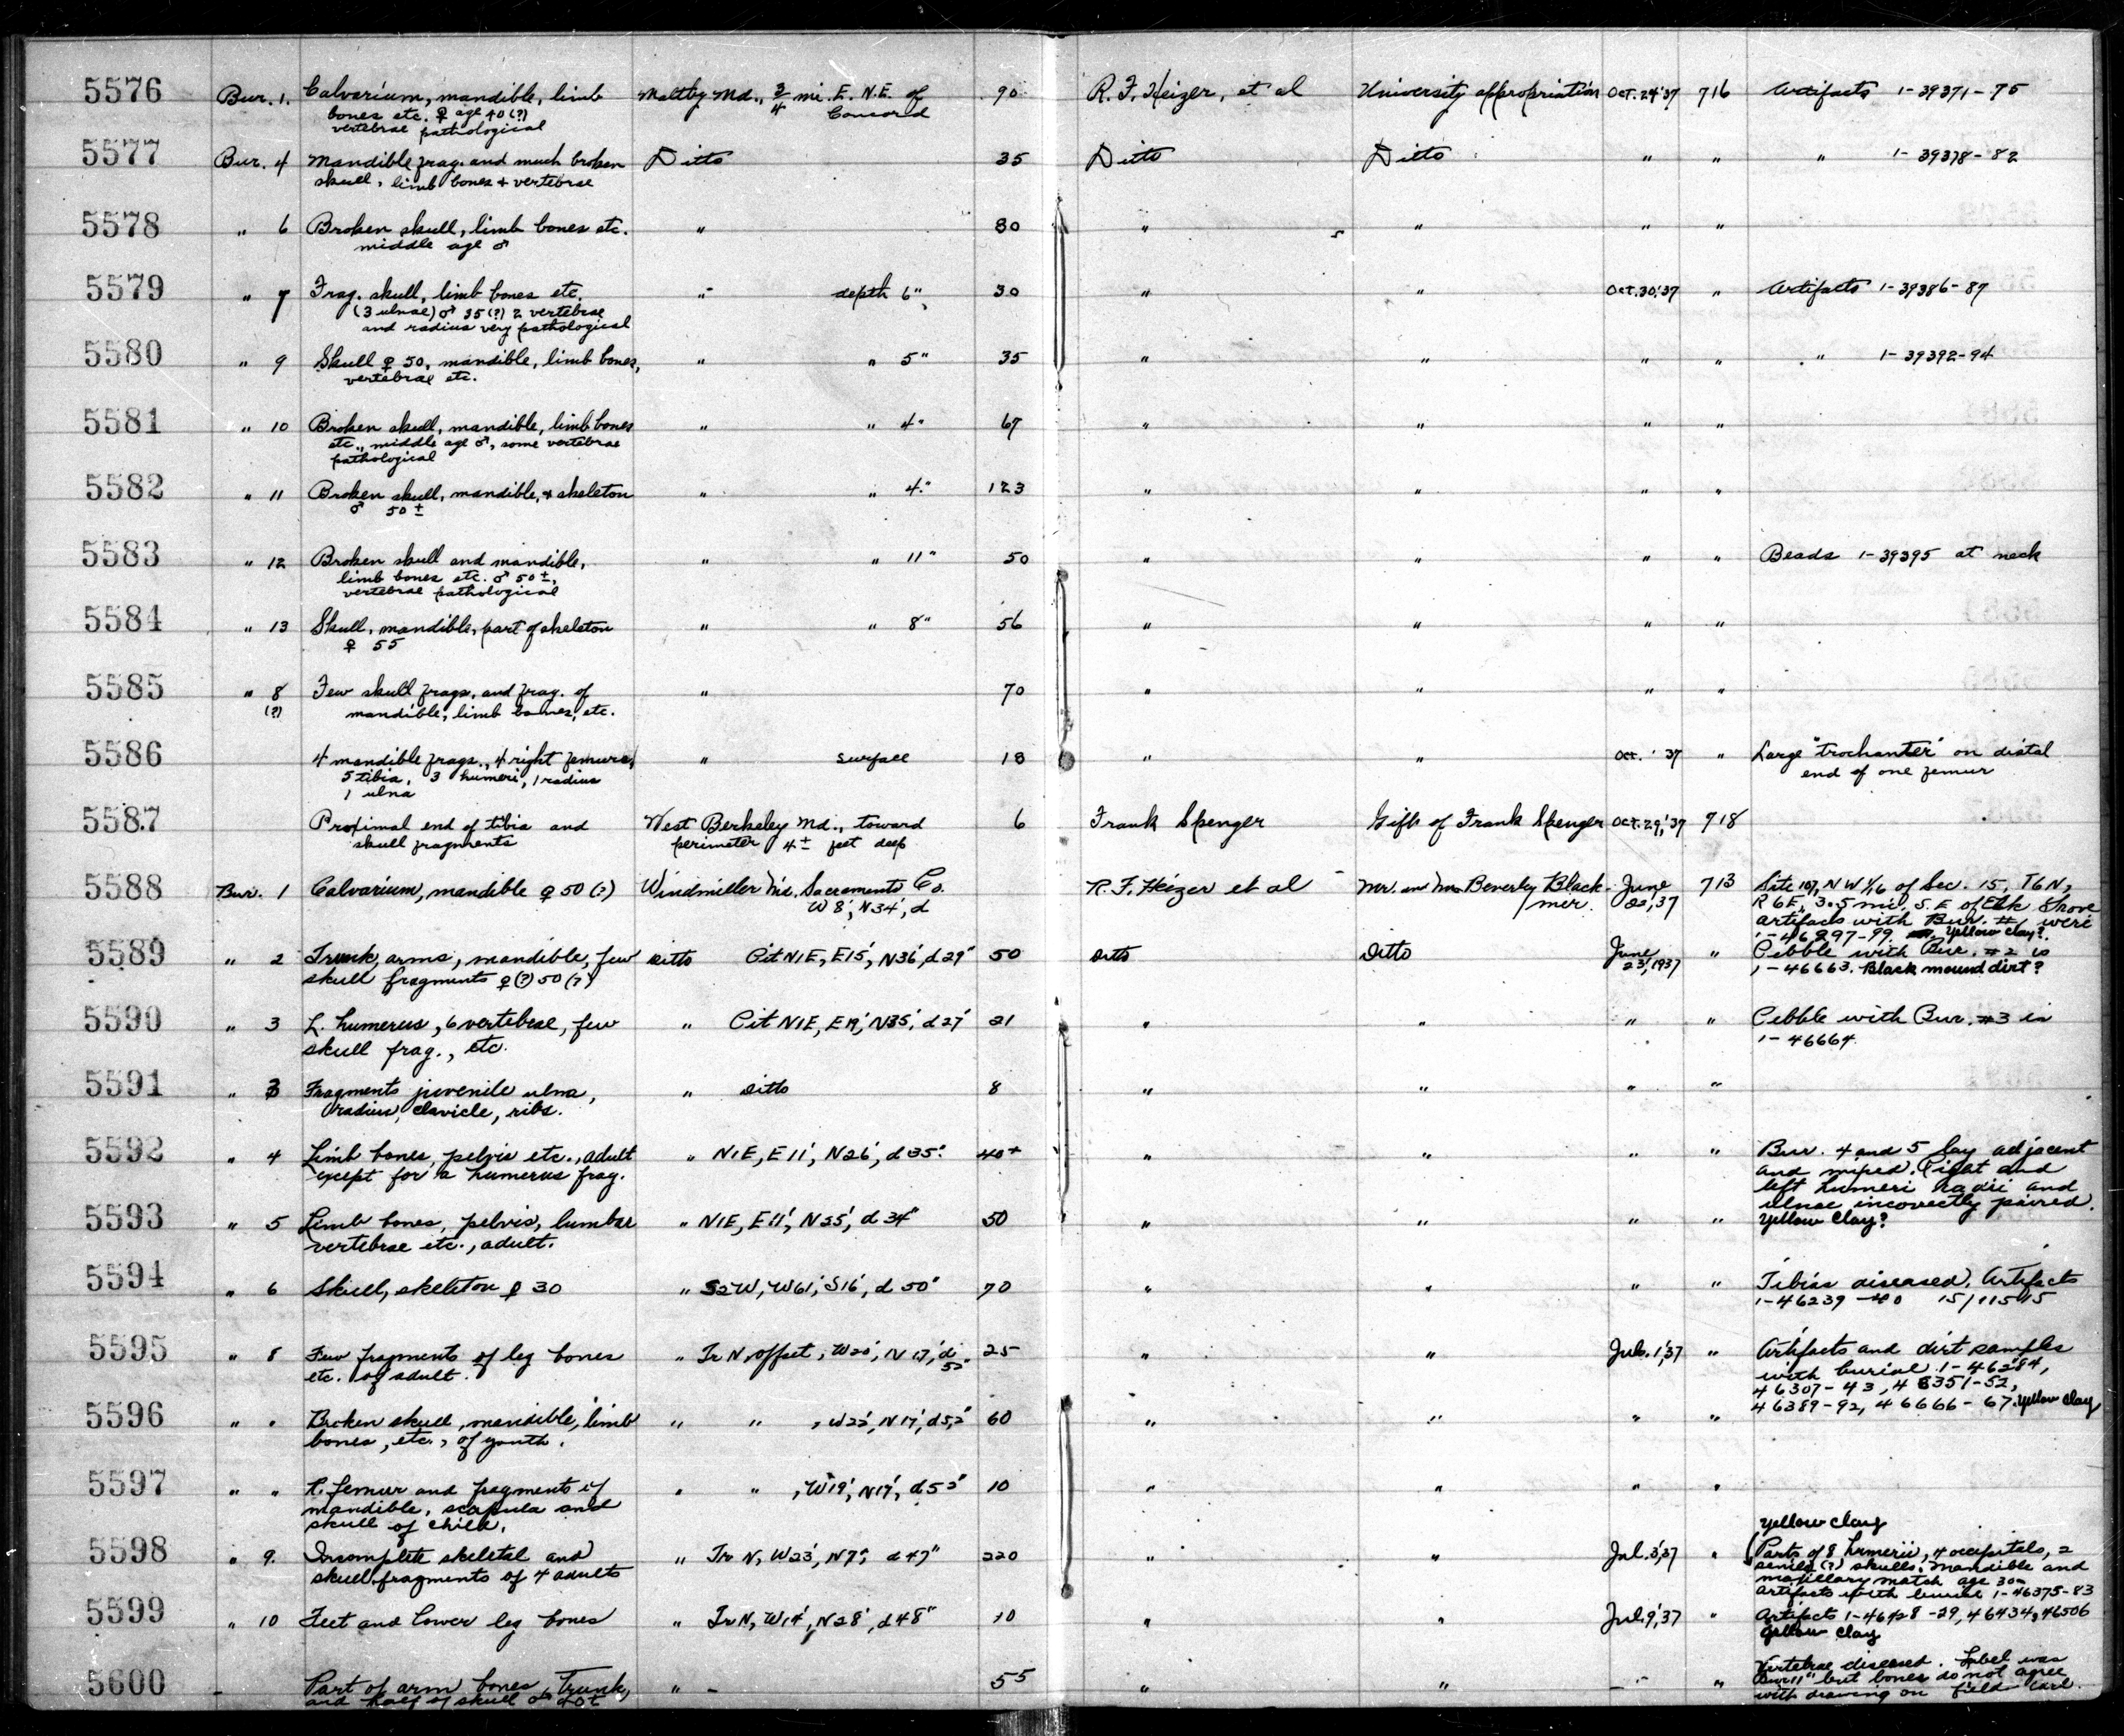 5576 Bur. 1. Calvarium, mandible, limb Maltby Md., 3/4 mi. E. N.E. of 90 R. F. Heizer, et al University appropriation Oct. 24 '37 716 Artifacts 1-39371-75
bones etc. ♀ age 40 (?) Concord
vertebrae pathological
5577 Bur. 4 Mandible frag. and much broken Ditto 35 Ditto Ditto " " " 1-39378-82
skull, limb bones + vertebrae
5578 " 6 Broken skull, limb bones etc. " 80 " " " "
middle age ♂
5579 " 7 Frag. skull, limb bones etc. " depth 6" 30 " " Oct. 30, '37 " Artifacts 1-39386-87
(3 ulnae) ♂ 35 (?) 2 vertebrae
and radius very pathological
5580 " 9 Skull ♀ 50, mandible, limb bones, " " 5" 35 " " " " " 1-39392-94
vertebrae etc.
5581 " 10 Broken skull, mandible, limb bones " " 4" 67 " " " "
etc., middle age ♂, some vertebrae
pathological
5582 " 11 Broken skull, mandible, + skeleton " " 4" 123 " " " "
♂ 50 ±
5583 " 12 Broken skull and mandible, " " 11" 50 " " " " Beads 1-39395 at neck
limb bones etc. ♂ 50 ±,
vertebrae pathological
5584 " 13 Skull, mandible, part of skeleton " " 8" 56 " " " "
♀ 55
5585 " 8 Few skull frags, and frag. of " 70 " " " "
(?) mandible, limb bones, etc.
5586 4 mandible frags., 4 right femurs, " surface 18 " " Oct. '37 " Large "trochanter" on distal
5 tibia, 3 humeri, 1 radius end of one femur
1 ulna
5587 Proximal end of tibia and West Berkeley Md., toward 6 Frank Spenger Gift of Frank Spenger Oct. 29, '37 718
skull fragments perimeter 4 ± feet deep
5588 Bur. 1 Calvarium, mandible ♀ 50 (?) Windmiller Md. Sacramento Co. R. F. Heizer et al Mr. and Mrs. Beverley Black- June 713 Site 107, NW 1/16 of Sec. 15, T6N,
W 8', N34', d mer. 22, '37 R 6E, 3.5 mi. S. E of Elk Grove
artifacts with Bur. #1 were
1-46297-99. Yellow clay?
5589 " 2 Trunk, arms, mandible, few Ditto Pit N1E, E15', N36', d 29" 50 Ditto Ditto June " Pebble with Bur. #2 is
skull fragments ♀ (?) 50 (?) 23, 1937 1-46663. Black mound dirt?
5590 " 3 L. humerus, 6 vertebrae, few " Pit N1E, E19', N35', d 27' 21 " " " " Pebble with Bur. #3 is
skull frag., etc. 1-46664
5591 " 3 Fragments juvenile ulna, " Ditto 8 " " " "
radius, clavicle, ribs.
5592 " 4 Limb bones, pelvis etc., adult " N1E, E11', N26', d 35". 40+ " " " " Bur. 4 and 5 lay adjacent
except for a humerus frag. and mixed. Right and
left humeri radii and
ulnae incorrectly paired.
5593 " 5 Limb bones, pelvis, lumbar " N1E, E11', N25', d 34" 50 " " " " Yellow clay?
vertebrae etc., adult.
5594 " 6 Skull, skeleton ♀ 30 " S2W, W61', S16', d 50" 70 " " " " Tibias diseased. Artifacts
1-46239-40 15/11515
5595 " 8 Few fragments of leg bones " Tr N, offset, W20', N17', d 25 " " Jul. 1, '37 " Artifacts and dirt samples
etc. of adult. 52" with burial 1-46284,
46307-43, 46351-52,
46389-92, 46666-67. Yellow clay
5596 " " Broken skull, mandible, limb " " , W22', N17', d 52" 60 " " " "
bones, etc., of youth.
5597 " " R. femur and fragments of " " , W19', N17', d 52" 10 " " " "
mandible, scapula and
skull of child.
Yellow clay
5598 " 9. Incomplete skeletal and " Tr N, W23', N7', d 47" 220 " " Jul. 3, '37 " (Parts of 8 humerii, 4 occipitals, 2
skull fragments of 4 adults senile (?) skulls. Mandible and
maxillary match age 30-
artifacts with burial 1-46375-83
5599 " 10 Feet and lower leg bones " Tr N, W14', N28', d 48" 10 " " Jul. 9, '37 " Artifacts 1-46428-29, 46434, 46506
Yellow clay
5600 - Part of arm bones, Trunk, " - 55 " " - " Vertebrae diseased. Label was
and half of skull ♂ "Bur 11" but bones do not agree
with drawing on field card.